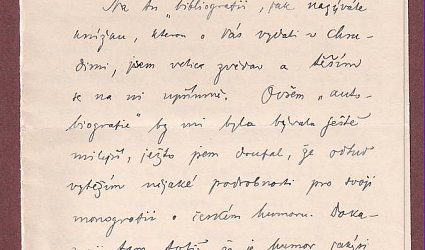 Na tu "bibliografii", jak nazýváte
knížku, kterou o Vás vydali v Chru-
dimi, jsem velice zvědav a těším
se na ni upřímně. Ovšem "auto-
biografie" by mi byla bývala ještě
milejší, ježto jsem doufal, že odtud
vytěžím nějaké podrobnosti pro svoji
monografii o českém humoru. Doka-
tam totiž, že je humor jakýsi